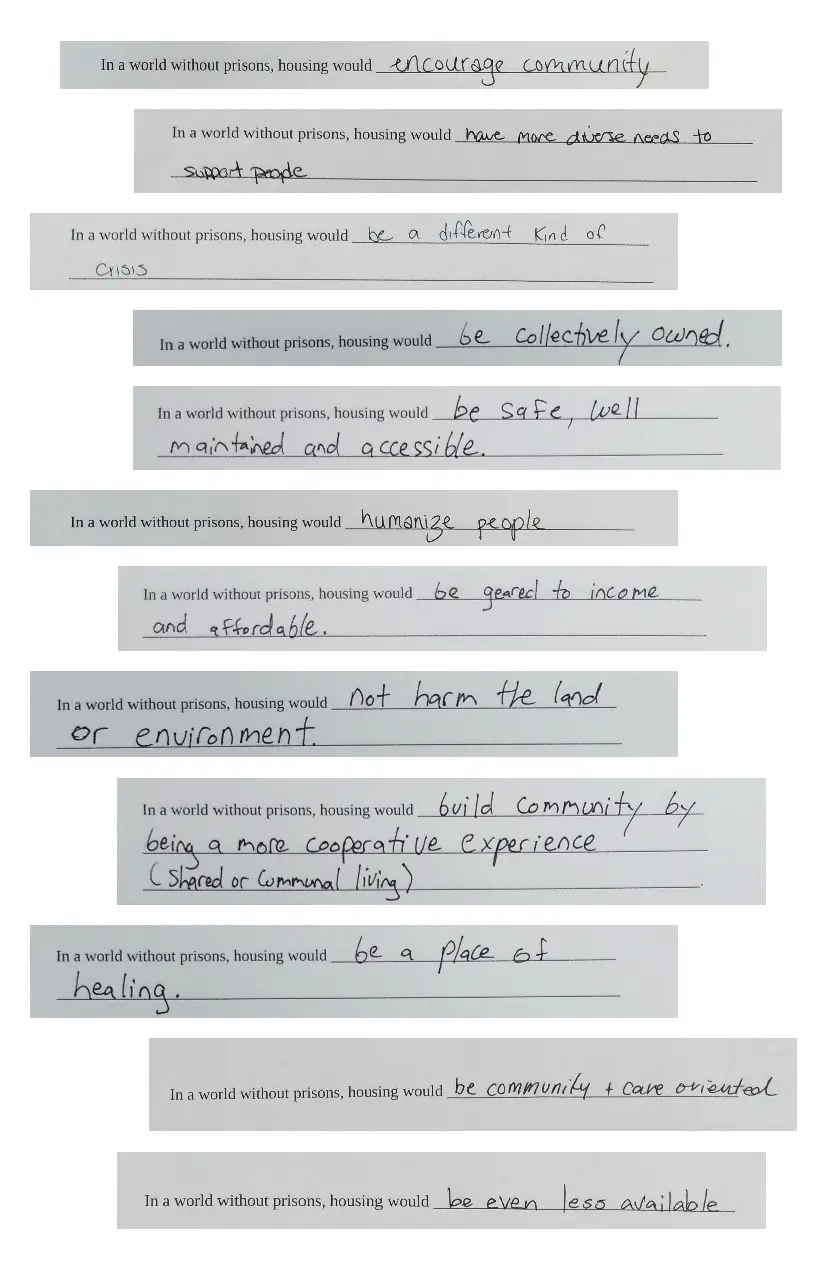 In a world without prisons, housing would encourage community
In a world without prisons, housing would have more diverse needs to
support people
In a world without prisons, housing would be a different kind of
crisis
In a world without prisons, housing would be collectively owned.
In a world without prisons, housing would be safe, well
maintained and accessible.
In a world without prisons, housing would humanize people
In a world without prisons, housing would be geared to income
and affordable.
In a world without prisons, housing would not harm the land
or environment.
In a world without prisons, housing would build community by
being a more cooperative experience
(shared or communal living)
In a world without prisons, housing would be a place of
healing.
In a world without prisons, housing would be community + care oriented
In a world without prisons, housing would be even less available